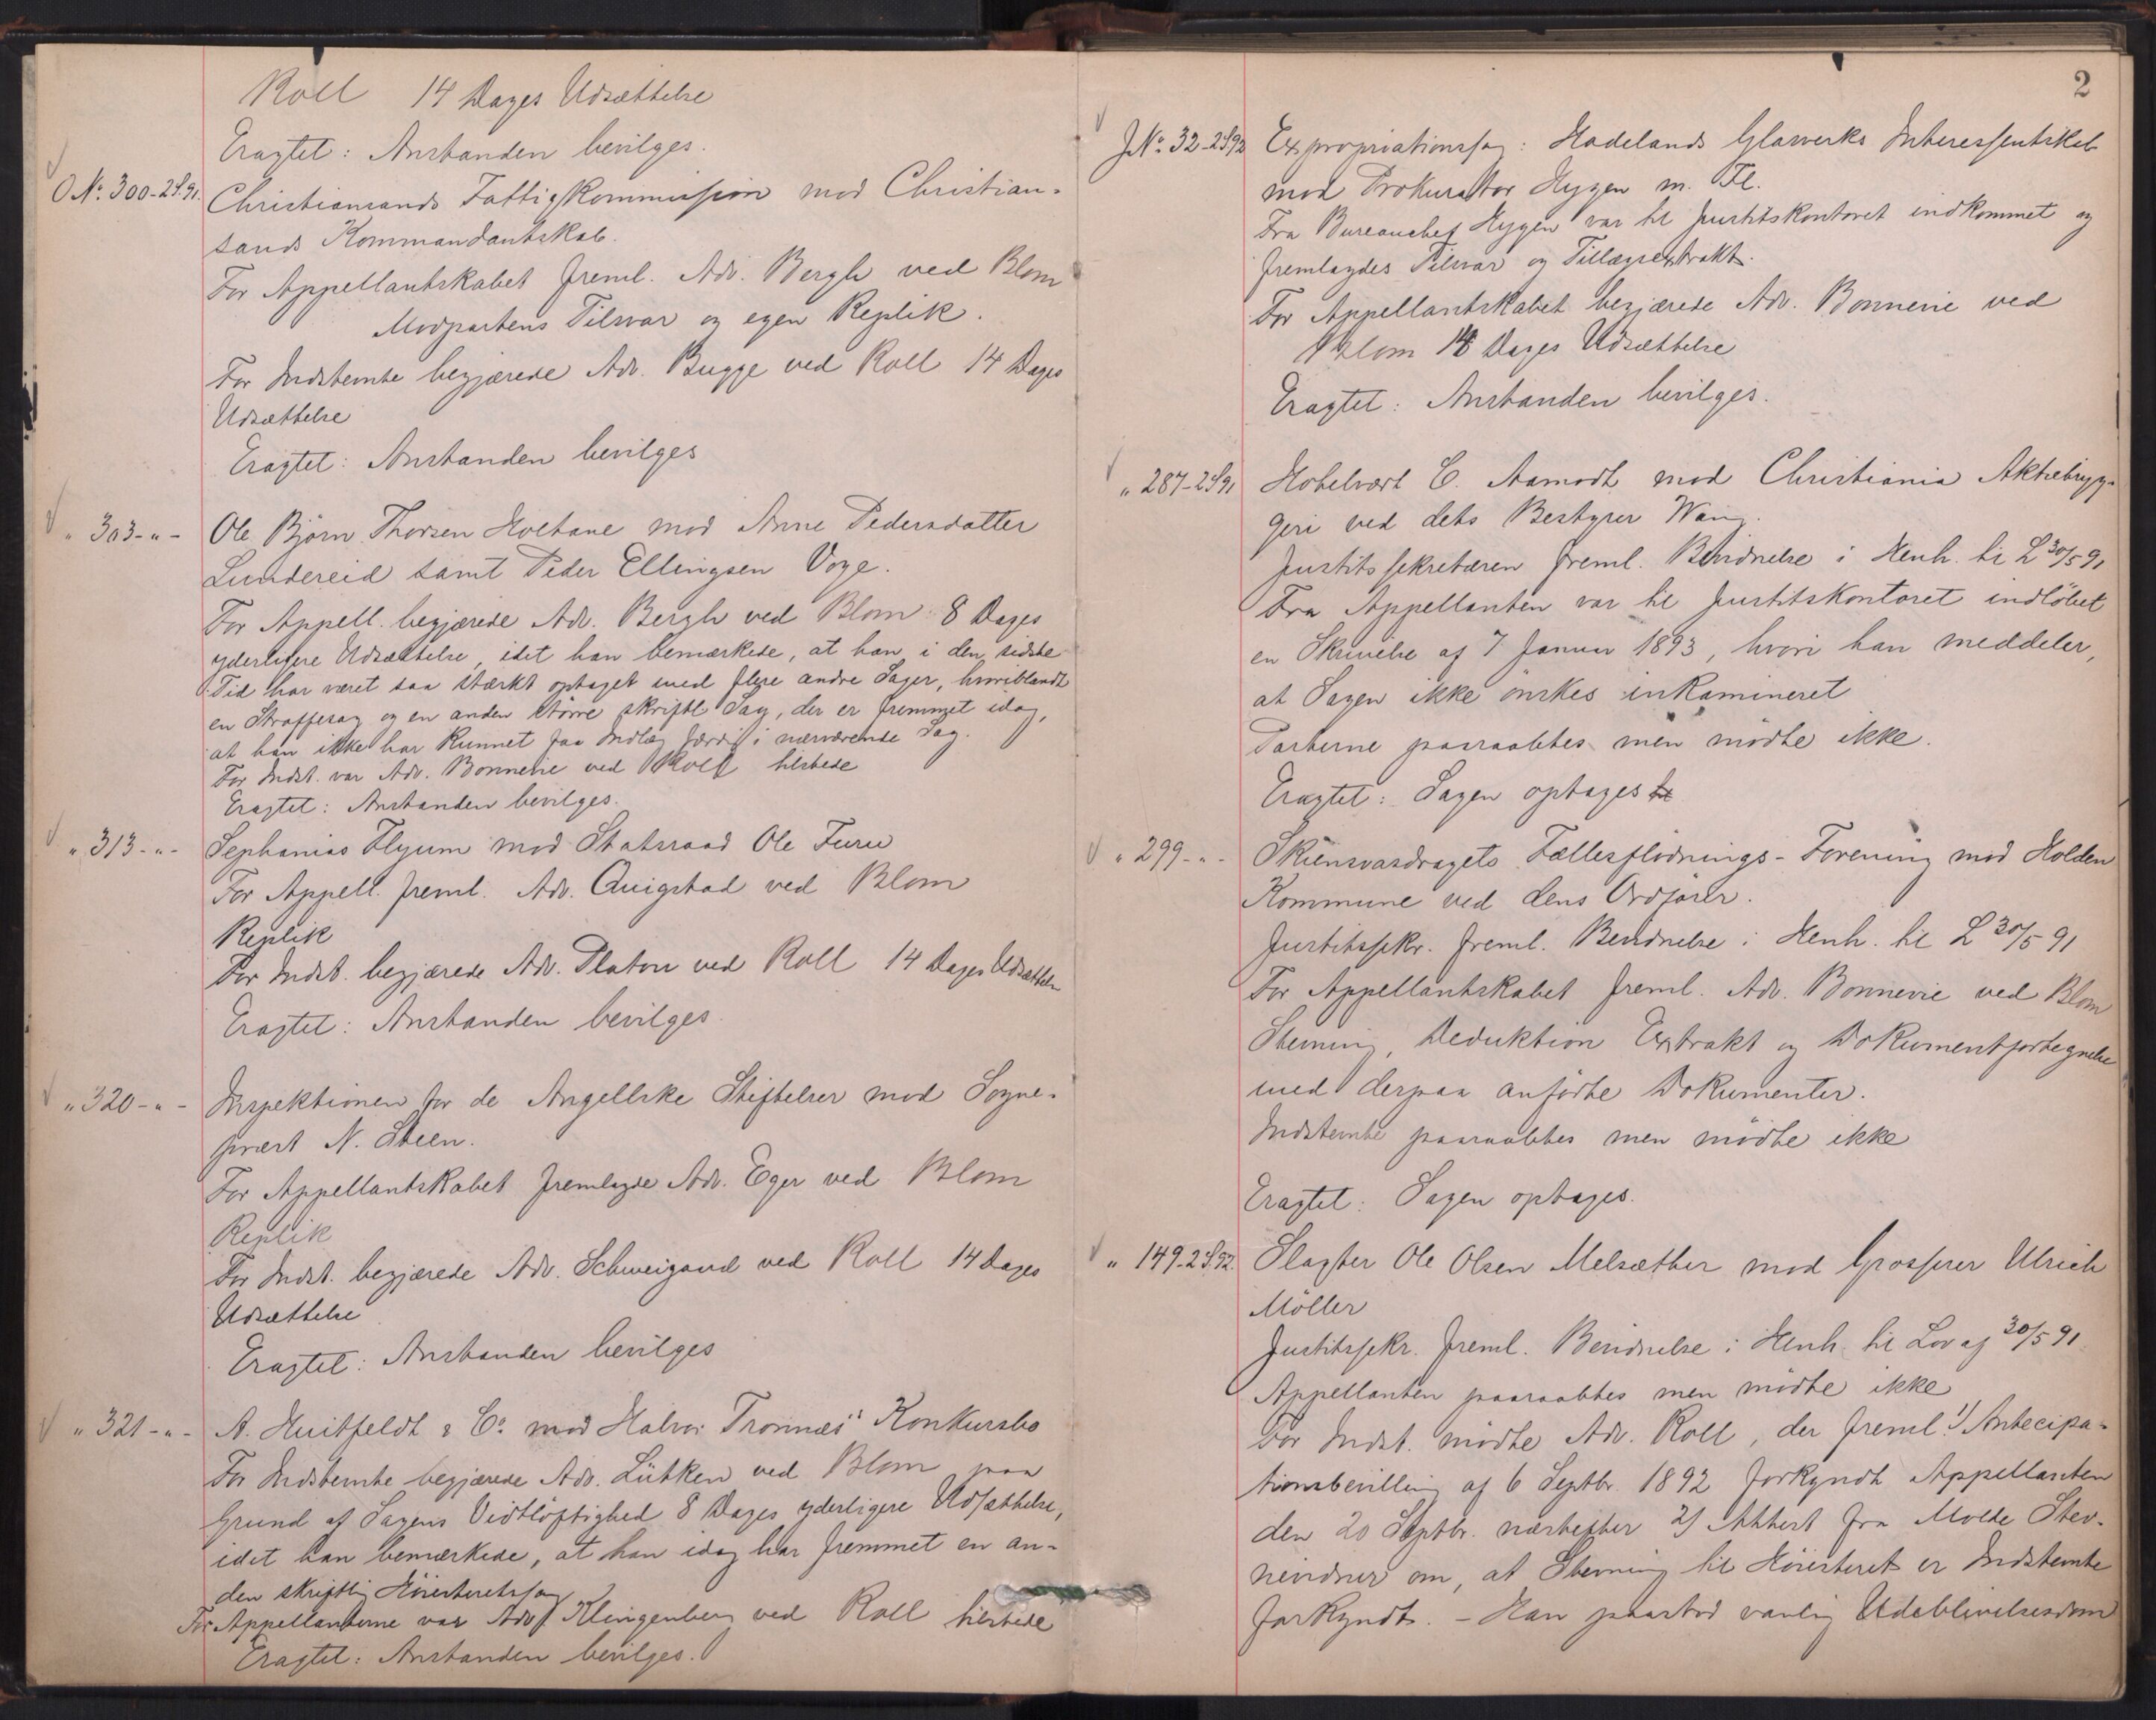 Roll 14 Dages Udsættelse
Eragtet: Anstanden bevilges.
O No. 300-2S91. Christiansands Fattigkommission mod Christian-
sands Kommandantskab.
For Appellantskabet freml. Adv. Bergh ved Blom
Modpartens Tilsvar og egen Replik.
For Indstevnte begjærede Adv. Bugge ved Roll 14 Dages
Udsættelse
Eragtet: Anstanden bevilges
" 303-"- Ole Björn Thorsen Holtane mod Anne Pedersdatter
Lundereid samt Peder Ellingsen Voge.
For Appell. begjærede Adv. Bergh ved Blom 8 Dages
yderligere Udsættelse, idet han bemærkede, at han i den sidste
Tid har været saa stærkt optaget med flere andre Sager, hvoriblandt
en Straffesag og en anden större skriftl. Sag, der er fremmet idag,
at han ikke har kunnet faa Indlæg færdig i nærværende Sag.
For Indst. var Adv. Bonnevie ved Roll tilstede
Eragtet: Anstanden bevilges.
" 313-"- Sephanias Flyum mod Statsraad Ole Furu
For Appell. freml. Adv. Quigstad ved Blom
Replik
For Indst. begjærede Adv. Platou ved Roll 14 Dages Udsættelse
Eragtet: Anstanden bevilges.
" 320-"- Inspektionen for de Angellske Stiftelser mod Sogne-
præst N. Steen.
For Appellantskabet fremlagde Adv. Eger ved Blom
Replik
For Indst. begjærede Adv. Schweigaard ved Roll 14 Dages
Udsættelse
Eragtet: Anstanden bevilges
" 321-"- A. Huitfeldt & Co. mod Halvor Tronnæs' Konkursbo
For Indstevnte begjærede Adv. Lütken ved Blom paa
Grund af Sagens Vidtlöftighed 8 Dages yderligere Udsættelse,
idet han bemærkede, at han idag har fremmet en an-
den skriftlig Höiesteretssag
For Appellanterne var Adv. Klingenberg ved Roll tilstede
Eragtet: Anstanden bevilges.
2
J No. 32-2S92 Expropriationssag: Hadelands Glasværks Interessentskab
mod Prokurator Hygen m. Fl.
Fra Bureauchef Hygen var til Justitskontoret indkommet og
fremlagdes Tilsvar og Tillægsextrakt.
For Appellantskabet begjærede Adv. Bonnevie ved
Blom 14 Dages Udsættelse
Eragtet: Anstanden bevilges.
" 287-2S91 Hotelvært C. Aamodt mod Christiania Aktiebryg-
geri ved dets Bestyrer Wang.
Justitssekretæren freml. Bevidnelse i Henh. til L 30/5 91
Fra Appellanten var til Justitskontoret indlöbet
en Skrivelse af 7 Januar 1893, hvori han meddeler,
at Sagen ikke önskes inkamineret
Parterne paaraabtes men mödte ikke.
Eragtet: Sagen optages
" 299-"- Skiensvasdragets Fællesflödnings-Forening mod Holden
Kommune ved dens Ordförer.
Justitssekr. freml. Bevidnelse i Henh. til L 30/5 91
For Appellantskabet freml. Adv. Bonnevie ved Blom
Stevning, Deduktion Extrakt og Dokumentfortegnelse
med derpaa anförte Dokumenter.
Indstevnte paaraabtes men mödte ikke
Eragtet: Sagen optages.
" 149-2S92. Slagter Ole Olsen Melsæther mod Grosserer Ulrich
Möller
Justitssekr. freml. Bevidnelse i Henh. til Lov af 30/5 91
Appellanten paaraabtes men mödte ikke
For Indst. mödte Adv. Roll, der freml. 1) Antecipa-
tionsbevilling af 6 Septbr. 1892 forkyndt Appellanten
den 20 Septbr. næstefter 2) Attest fra Molde Stev-
nevidner om, at Stevning til Höiesteret er Indstevnte
forkyndt. - Han paastod vanlig Udeblivelsesdom